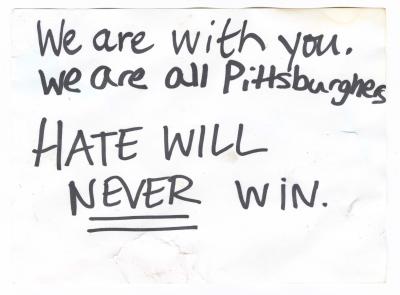 We are with you.
We are all Pittsburghers
HATE WILL
NEVER WIN.